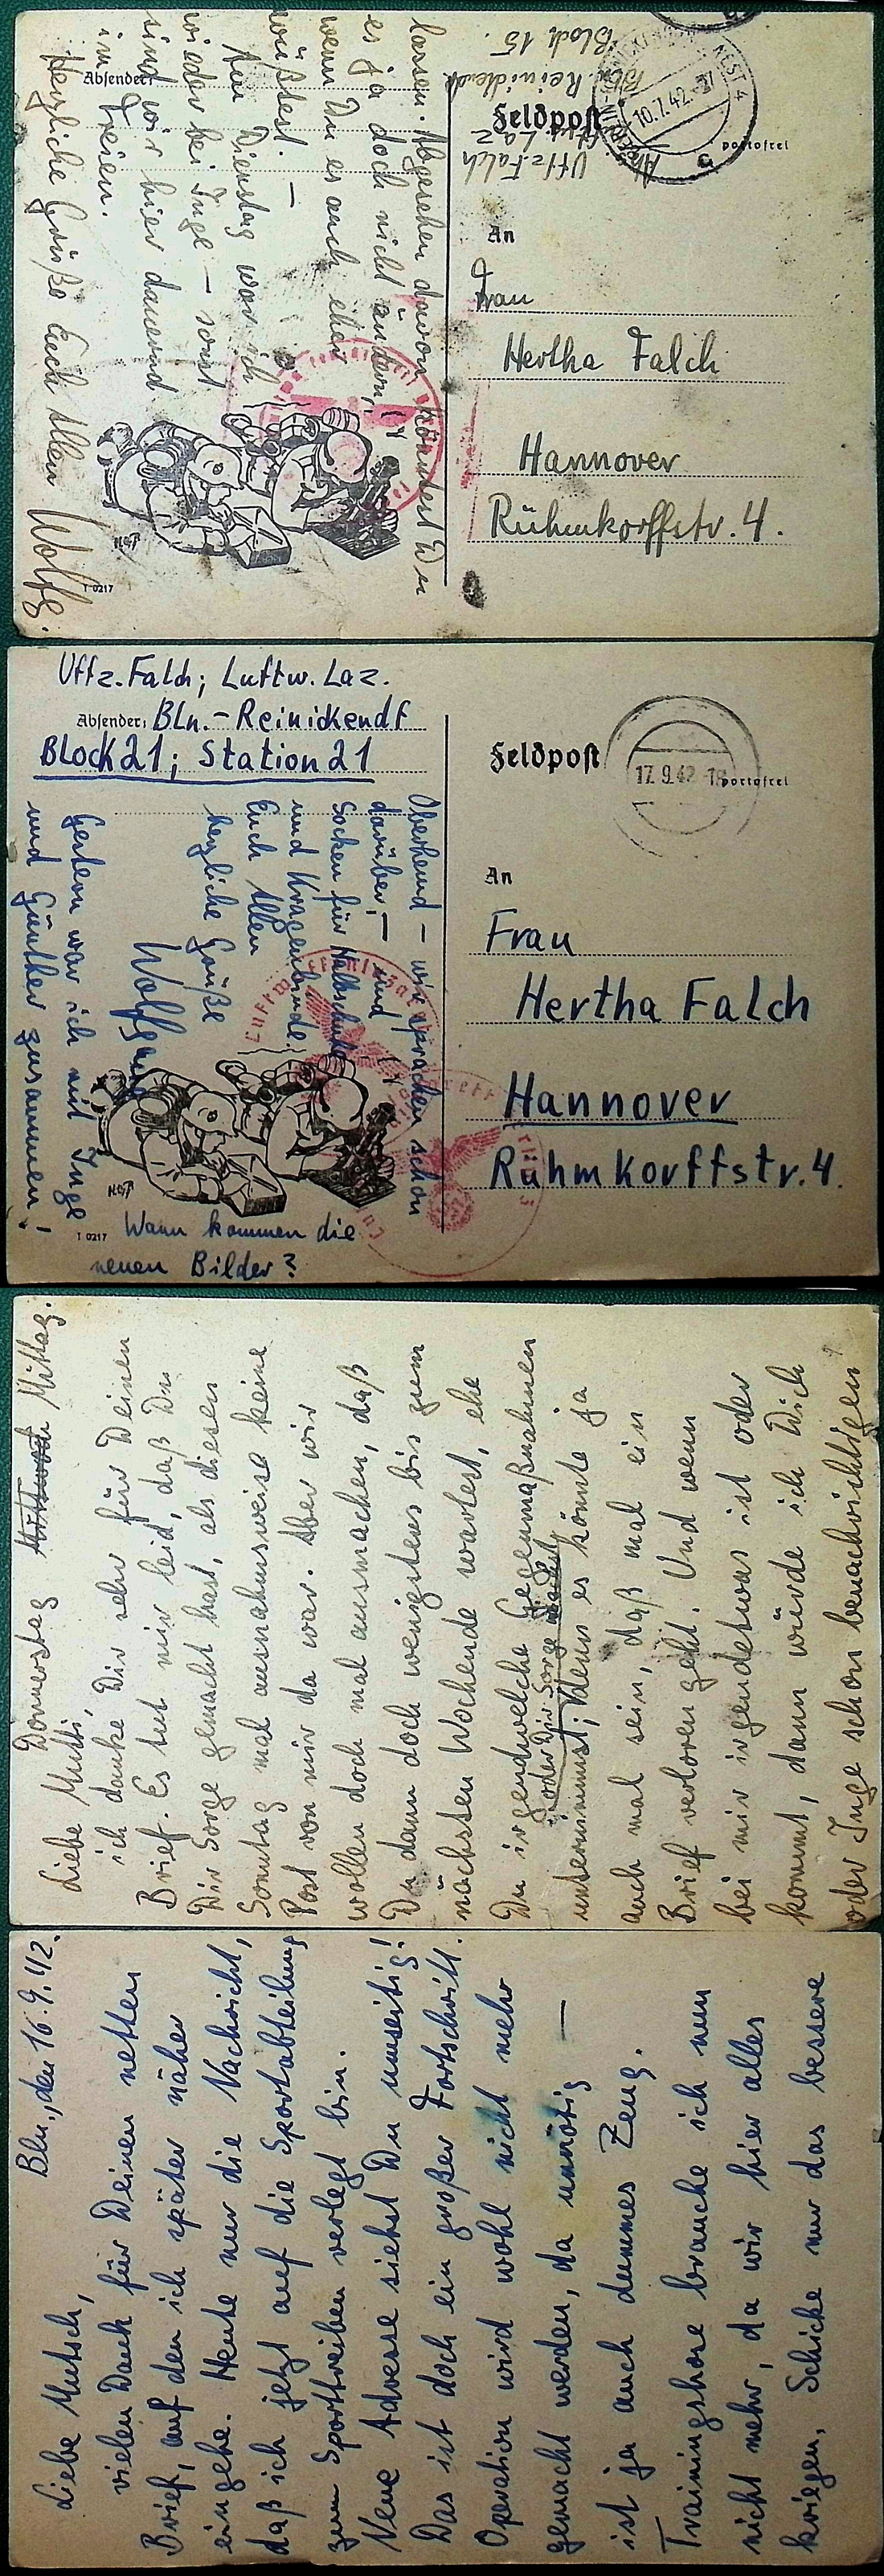 Feldpost
portofrei
10.7.42
Absender:
Abs.
Uffz. Falch
Block 15.
An
Frau
Hertha Falch
Hannover
Rühmkorffstr. 4.
lassen. Abgesehen davon könntest Du
es ja doch nicht ändern,
wenn Du es auch eher
wüßtest. –
Am Dienstag war ich
wieder bei Inge – sonst
sind wir hier dauernd
im Freien.
Herzliche Grüße Euch allen
Wolfg.
T 0217
Uffz. Falch; Luftw. Laz.
Absender: Bln.-Reinickendf
Block 21; Station 21
Feldpost
portofrei
17.9.42
An
Frau
Hertha Falch
Hannover
Rühmkorffstr. 4.
Oberhemd – wir sprachen schon
darüber, – und
Socken für Halbschuhe
und Kragenbinde
Euch allen
herzliche Grüße
Wolfgang
Gestern war ich mit Inge
und Günther zusammen!
T 0217
Wann kommen die
neuen Bilder?
Donnerstag Mittag.
Liebe Mutti,
ich danke Dir sehr für Deinen
Brief. Es tut mir leid, daß Du
Dir Sorge gemacht hast, als diesen
Sonntag mal ausnahmsweise keine
Post von mir da war. Aber wir
wollen doch mal ausmachen, daß
Du dann doch wenigstens bis zum
nächsten Wochende wartest, ehe
Du irgendwelche Gegenmaßnahmen
oder Dir Sorge machst
unternimmst; denn es könnte ja
auch mal sein, daß mal ein
Brief verloren geht. Und wenn
bei mir irgendetwas ist oder
kommt, dann würde ich Dich
oder Inge schon benachrichtigen
Bln., den 16.9.42.
Liebe Mutsch,
vielen Dank für Deinen netten
Brief, auf den ich später näher
eingehe. Heute nur die Nachricht,
daß ich jetzt auf die Sportabteilung
zum Sporttreiben verlegt bin.
Neue Adresse siehst Du umseitig!
Das ist doch ein großer Fortschritt.
Operation wird wohl nicht mehr
gemacht werden, da unnötig –
ist ja auch dummes Zeug.
Trainingshose brauche ich nun
nicht mehr, da wir hier alles
kriegen, Schicke nur das bessere